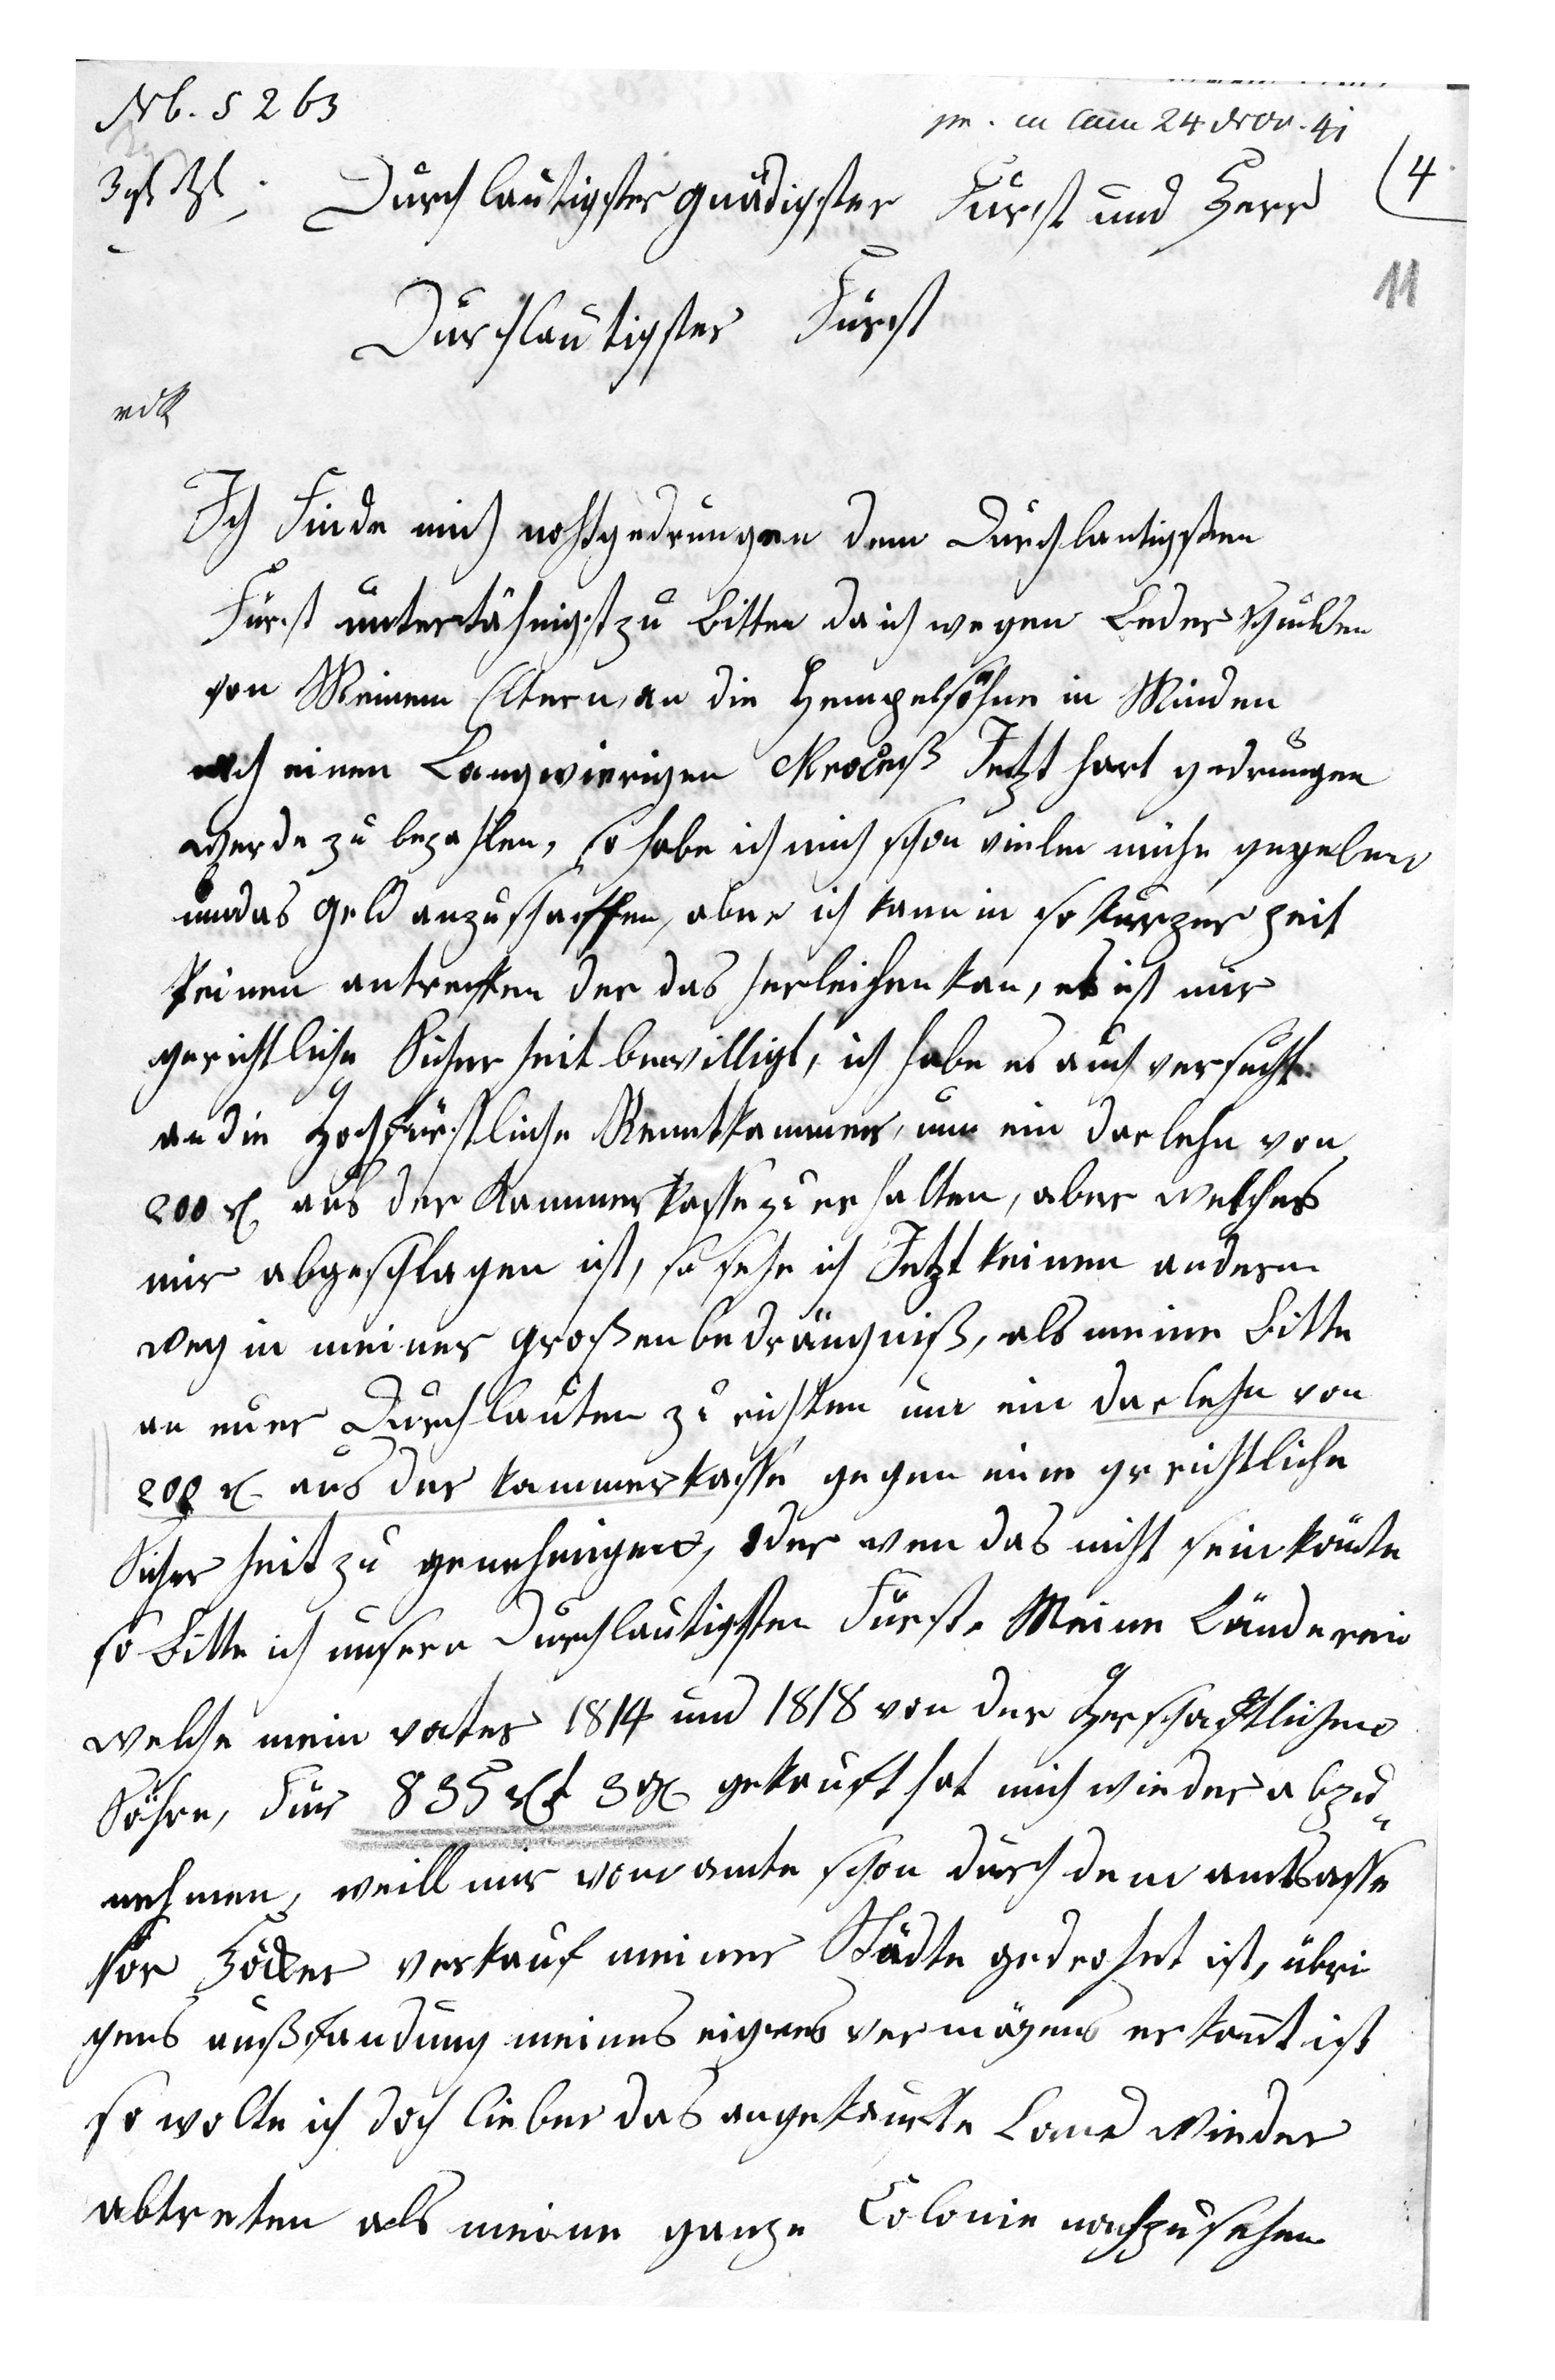 Nb. 5263
pr. in Cam 24 Nov. 41
4
3 gl
Durchlautigster gnädigster Fürst und Herr
11
Durchlautigster Fürst
Ich Finde mich nohtgedrungen dem Durchlautigsten
Fürst untertähnigst zu bitten da ich wegen Leder schulden
von Meinem Eltern, an die Hempelsöhne in Minden
nach einen Langwierigen Proceß Jetzt hart gedrungen
werde zu bezahlen, so habe ich mich schon vieler mühe gegeben
um das geld anzuschaffen, aber ich kann in so kurzer zeit
keinen antreffen der das herleihen kan, es ist mir
gerichtliche Sicherheit bewilligt, ich habe es auch versucht
an die Hochfürstliche Renntkammer, um ein darlehn von
200 r aus der Kammerkasse zu erhalten, aber welches
mir abgeschlagen ist, so sehe ich Jetzt keinen andern
weg in meiner großen bedrängniß, als meine bitte
an euer Durchlauten zu richten um ein darlehn von
200 r aus der kammerkasse gegen eine grichtliche
Sicherheit zu genehmigen, oder wen das nicht sein könte
so bitte ich unsern Durchlautigsten Fürst. Meine Länderein
welche mein vater 1814 und 1818 von der Herschaftlichen
Söhre, Für 835 rt 3 g gekauft hat mich wieder abzu„
nehmen, weill mir vom amte schon durch dem amtsasse
sor Höcker verkauf meiner Städte gedrohet ist, übri
gens außpfandung meines eignes vermögens erkant ist
so wolte ich doch lieber das angekaufte Land wieder
abtreten als meine ganze Colonie nachzusehen